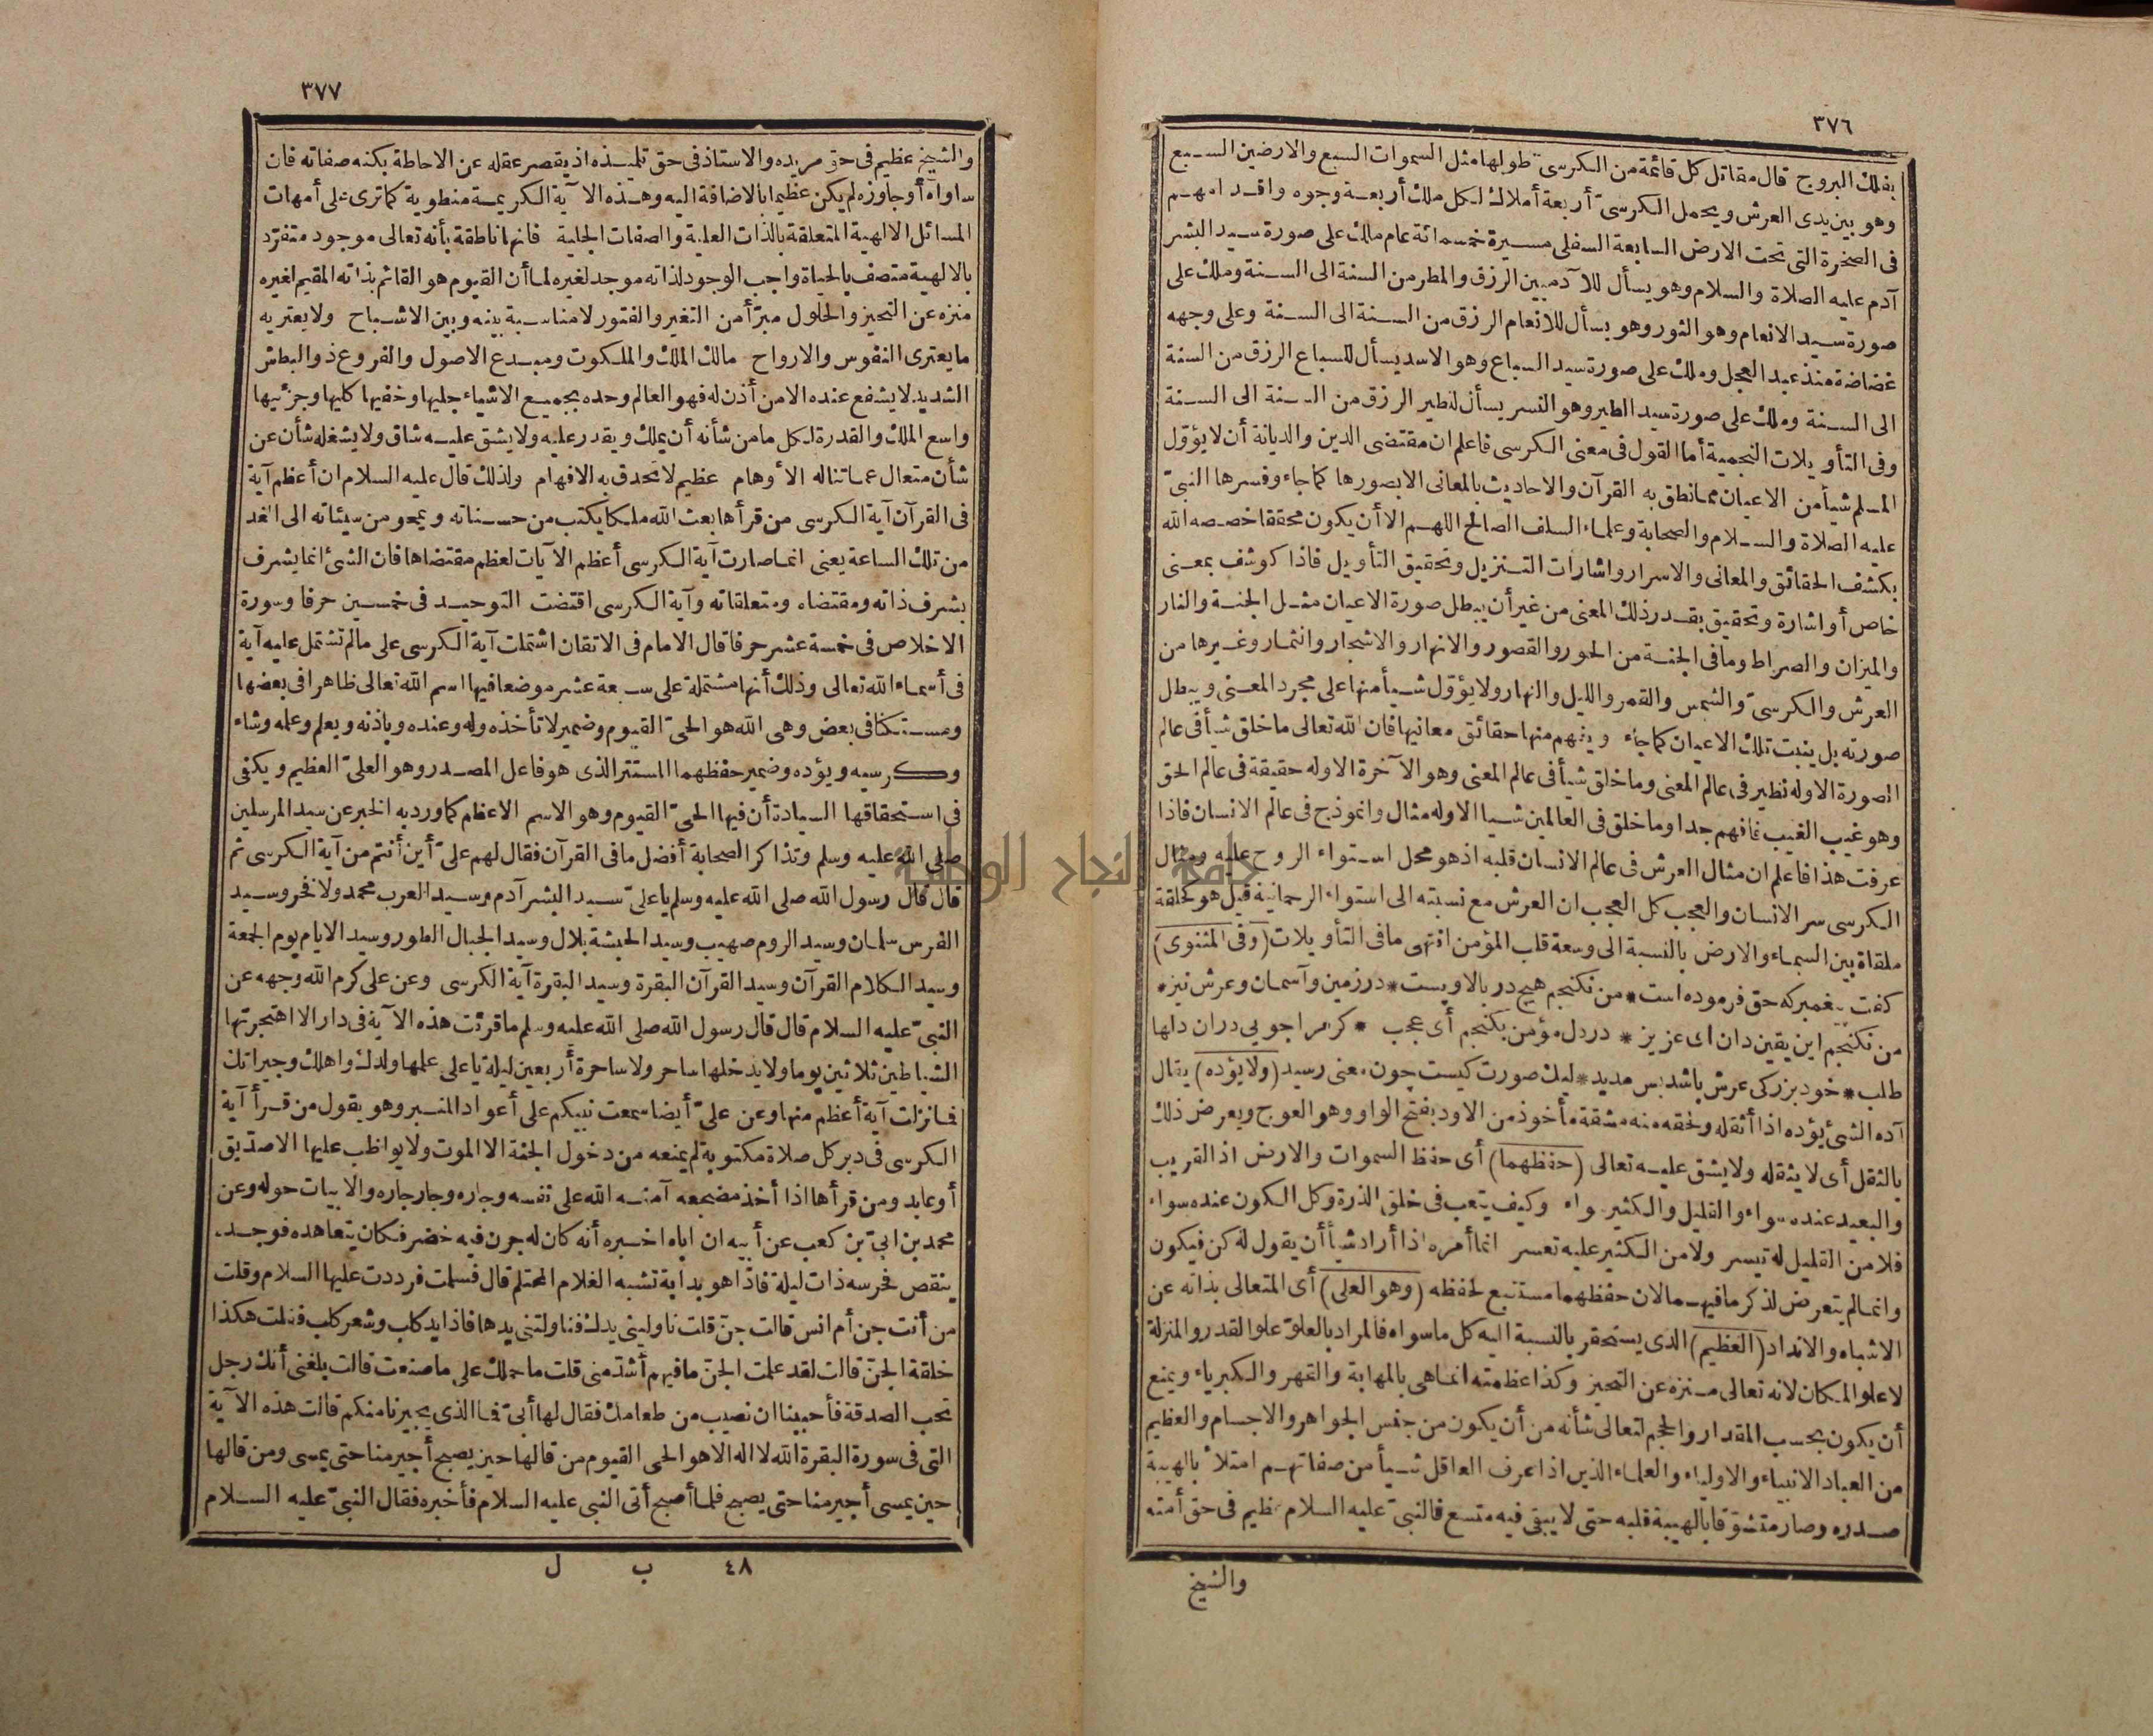 ٣٧٦
بفلك البروج قال مقاتل كل قائمة من الكرسى طولها مثل السموات السبع والارضين السبع
وهو بين يدى العرش ويحمل الكرسىّ أربعة أملاك لكل ملك أربعة وجوه واقدامهم
فى الصخرة التى تحت الارض السابعة السفلى مسيرة خمسمائة عام ملك على صورة سيد البشر
آدم عليه الصلاة والسلام وهو يسأل للآدميين الرزق والمطر من السنة الى السنة وملك على
صورة سيد الانعام وهو الثور وهو يسأل للانعام الرزق من السنة الى السنة وعلى وجهه
غضاضة منذ عبد العجل وملك على صورة سيد السباع وهو الاسد يسأل للسباع الرزق من السنة
الى السنة وملك على صورة سيد الطير وهو النسر يسأل للطير الرزق من السنة الى السنة
وفى التأويلات النجمية أما القول فى معنى الكرسى فاعلم ان مقتضى الدين والديانة أن لا يؤوّل
المسلم شيأ من الاعيان مما نطق به القرآن والاحاديث بالمعانى الا بصورها كما جاء وفسرها النبىّ
عليه الصلاة والسلام والصحابة وعلماء السلف الصالح اللهم الا أن يكون محققا خصصه الله
بكشف الحقائق والمعانى والاسرار واشارات التنزيل وتحقيق التأويل فاذا كوشف بمعنى
خاص أو اشارة وتحقيق يقدر ذلك المعنى من غير أن يبطل صورة الاعيان مثل الجنة والنار
والميزان والصراط وما فى الجنة من الحور والقصور والانهار والاشجار والثمار وغيرها من
العرش والكرسىّ والشمس والقمر والليل والنهار ولا يؤوّل شيأ منها على مجرد المعنى ويبطل
صورته بل يثبت تلك الاعيان كما جاء ويفهم منها حقائق معانيها فان الله تعالى ما خلق شيأ فى عالم
الصورة الا وله نظير فى عالم المعنى وما خلق شيأ فى عالم المعنى وهو الآخرة الا وله حقيقة فى عالم الحق
وهو غيب الغيب فافهم جدا وما خلق فى العالمين شيا الا وله مثال وانموذج فى عالم الانسان فاذا
عرفت هذا فاعلم ان مثال العرش فى عالم الانسان قلبه اذ هو محل استواء الروح عليه ومثال
الكرسى سر الانسان والعجب كل العجب ان العرش مع نسبته الى استواء الرحمانية قيل هو كحلقة
ملقاة بين السماء والارض بالنسبة الى وسعة قلب المؤمن انتهى ما فى التأويلات (وفى المثنوى)
كفت پيغمبر كه حق فرموده است * من نكنجم هيچ در بالا وپست * در زمين وآسمان وعرش نيز *
من نكنجم اين يقين دان اى عزيز * در دل مؤمن بكنجم أى عجب * كرمرا جويى دران دلها
طلب * خود بزركى عرش باشد بس مديد * ليك صورت كيست چون معنى رسيد (ولا يؤده) يقال
آده الشئ يؤده اذا أثقله ولحقه منه مشقة مأخوذ من الاود بفتح الواو وهو العوج ويعرض ذلك
بالثقل أى لا يثقله ولا يشق عليه تعالى (حفظهما) أى حفظ السموات والارض اذ القريب
والبعيد عنده سواء والقليل والكثير سواء وكيف يتعب فى خلق الذرة وكل الكون عنده سواء
فلا من القليل له تيسر ولا من الكثير عليه تعسر انما أمره اذا أراد شيأ أن يقول له كن فيكون
وانما لم يتعرض لذكر ما فيهما لان حفظهما مستتبع لحفظه (وهو العلى) أى المتعالى بذاته عن
الاشباه والانداد (العظيم) الذى يستحقر بالنسبة اليه كل ما سواه فالمراد بالعلوّ علو القدر والمنزلة
لا علو المكان لانه تعالى منزه عن التحيز وكذا عظمته انما هى بالمهابة والقهر والكبرياء ويمتنع
أن يكون بحسب المقدار والحجم لتعالى شأنه من أن يكون من جنس الجواهر والاجسام والعظيم
من العباد الانبياء والاولياء والعلماء الذين اذا عرف العاقل شيأ من صفاتهم امتلأ بالهيبة
صدره وصار متشوّقا بالهيبة قلبه حتى لا يبقى فيه متسع فالنبىّ عليه السلام عظيم فى حق أمته
والشيخ
٣٧٧
والشيخ عظيم فى حق مريده والاستاذ فى حق تلميذه اذ يقصر عقله عن الاحاطة بكنه صفاته فان
ساواه أو جاوزه لم يكن عظيما بالاضافة اليه وهذه الآية الكريمة منطوية كما ترى على أمهات
المسائل الالهية المتعلقة بالذات العلية والصفات الجلية فانها ناطقة بأنه تعالى موجود متفرّد
بالالهية متصف بالحياة واجب الوجود لذاته موجد لغيره لما أن القيوم هو القائم بذاته المقيم لغيره
منزه عن التحيز والحلول مبرّأ من التغير والفتور لا مناسبة بينه وبين الاشباح ولا يعتريه
ما يعترى النفوس والارواح مالك الملك والملكوت ومبدع الاصول والفروع ذو البطش
الشديد لا يشفع عنده الا من أذن له فهو العالم وحده بجميع الاشياء جليها وخفيها كليها وجزئيها
واسع الملك والقدرة لكل ما من شأنه أن يملك ويقدر عليه ولا يشق عليه شاق ولا يشغله شأن عن
شأن متعال عما تناله الأوهام عظيم لا تحدق به الافهام ولذلك قال عليه السلام ان أعظم آية
فى القرآن آية الكرسى من قرأها بعث الله ملكا يكتب من حسناته ويمحو من سيئاته الى الغد
من تلك الساعة يعنى انما صارت آية الكرسى أعظم الآيات لعظم مقتضاها فان الشئ انما يشرف
بشرف ذاته ومقتضاه ومتعلقاته وآية الكرسى اقتضت التوحيد فى خمسين حرفا وسورة
الاخلاص فى خمسة عشر حرفا قال الامام فى الاتقان اشتملت آية الكرسى على ما لم تشتمل عليه آية
فى أسماء الله تعالى وذلك أنها مشتملة على سبعة عشر موضعا فيها اسم الله تعالى ظاهرا فى بعضها
ومستكنا فى بعض وهى الله هو الحىّ القيوم وضمير لا تأخذه وله وعنده وباذنه ويعلم وعلمه وشاء
وكرسيه ويؤده وضمير حفظهما المستتر الذى هو فاعل المصدر وهو العلىّ العظيم ويكفى
فى استحقاقها السيادة أن فيها الحىّ القيوم وهو الاسم الاعظم كما ورد به الخبر عن سيد المرسلين
صلى الله عليه وسلم وتذاكر الصحابة أفضل ما فى القرآن فقال لهم علىّ أين أنتم من آية الكرسى ثم
قال قال رسول الله صلى الله عليه وسلم يا علىّ سيد البشر آدم وسيد العرب محمد ولا فخر وسيد
الفرس سلمان وسيد الروم صهيب وسيد الحبشة بلال وسيد الجبال الطور وسيد الايام يوم الجمعة
وسيد الكلام القرآن وسيد القرآن البقرة وسيد البقرة آية الكرسى وعن على كرم الله وجهه عن
النبىّ عليه السلام قال قال رسول الله صلى الله عليه وسلم ما قرئت هذه الآية فى دار الا اهتجرتها
الشياطين ثلاثين يوما ولا يدخلها ساحر ولا ساحرة أربعين ليلة يا على علمها ولدك واهلك وجيرانك
فما نزلت آية أعظم منها وعن علىّ أيضا سمعت نبيكم على أعواد المنبر وهو يقول من قرأ آية
الكرسى فى دبر كل صلاة مكتوبة لم يمنعه من دخول الجنة الا الموت ولا يواظب عليها الا صدّيق
أو عابد ومن قرأها اذا أخذ مضجعه آمنه الله على نفسه وجاره وجار جاره والابيات حوله وعن
محمد بن ابىّ بن كعب عن أبيه ان اباه اخبره أنه كان له جرن فيه خضر فكان يتعاهده فوجده
ينقص فحرسه ذات ليلة فاذا هو بدابة تشبه الغلام المحتلم قال فسلمت فرددت عليها السلام وقلت
من أنت جن أم انس قالت جنّ قلت ناولينى يدك فناولتنى يدها فاذا يد كلب وشعر كلب فقلت هكذا
خلقة الجنّ قالت لقد علمت الجنّ ما فيهم أشدّ منى قلت ما حملك على ما صنعت قالت بلغنى أنك رجل
تحب الصدقة فأحببنا ان نصيب من طعامك فقال لها أبىّ فما الذى يجيرنا منكم قالت هذه الآية
التى فى سورة البقرة الله لا اله الا هو الحى القيوم من قالها حين يصبح أجير منا حتى يمسى ومن قالها
حين يمسى أجير منا حتى يصبح فلما أصبح أتى النبى عليه السلام فأخبره فقال النبىّ عليه السلام
٤٨ ب ل
جامعة النجاح الوطنية